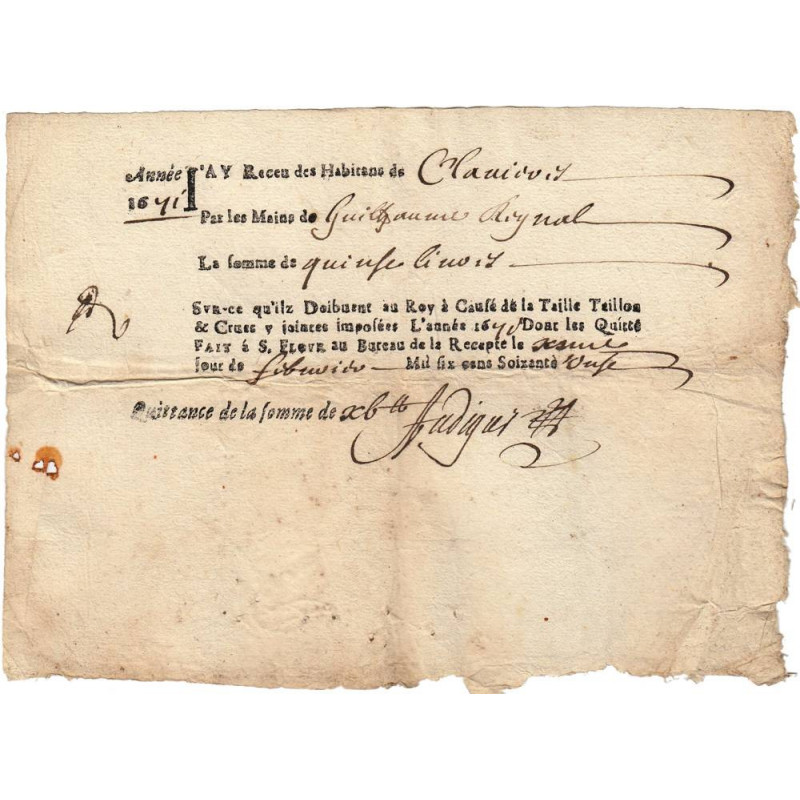 Année I'AY Receu des Habitans de Clavieres
1671
Par les Mains de Guilhaume Reynal
La somme de quinse livres
Svr-ce qu'ilz Doibuent au Roy à Causé de la Taille Teillon
& Crues y jointes imposées L'année 1671 Dont les Quitté
FAIT à S. FLOVR au Bureau de la Recepte le
Jour de febvrier Mil six cens Soixante Onse
Quittance de la somme de xb tt